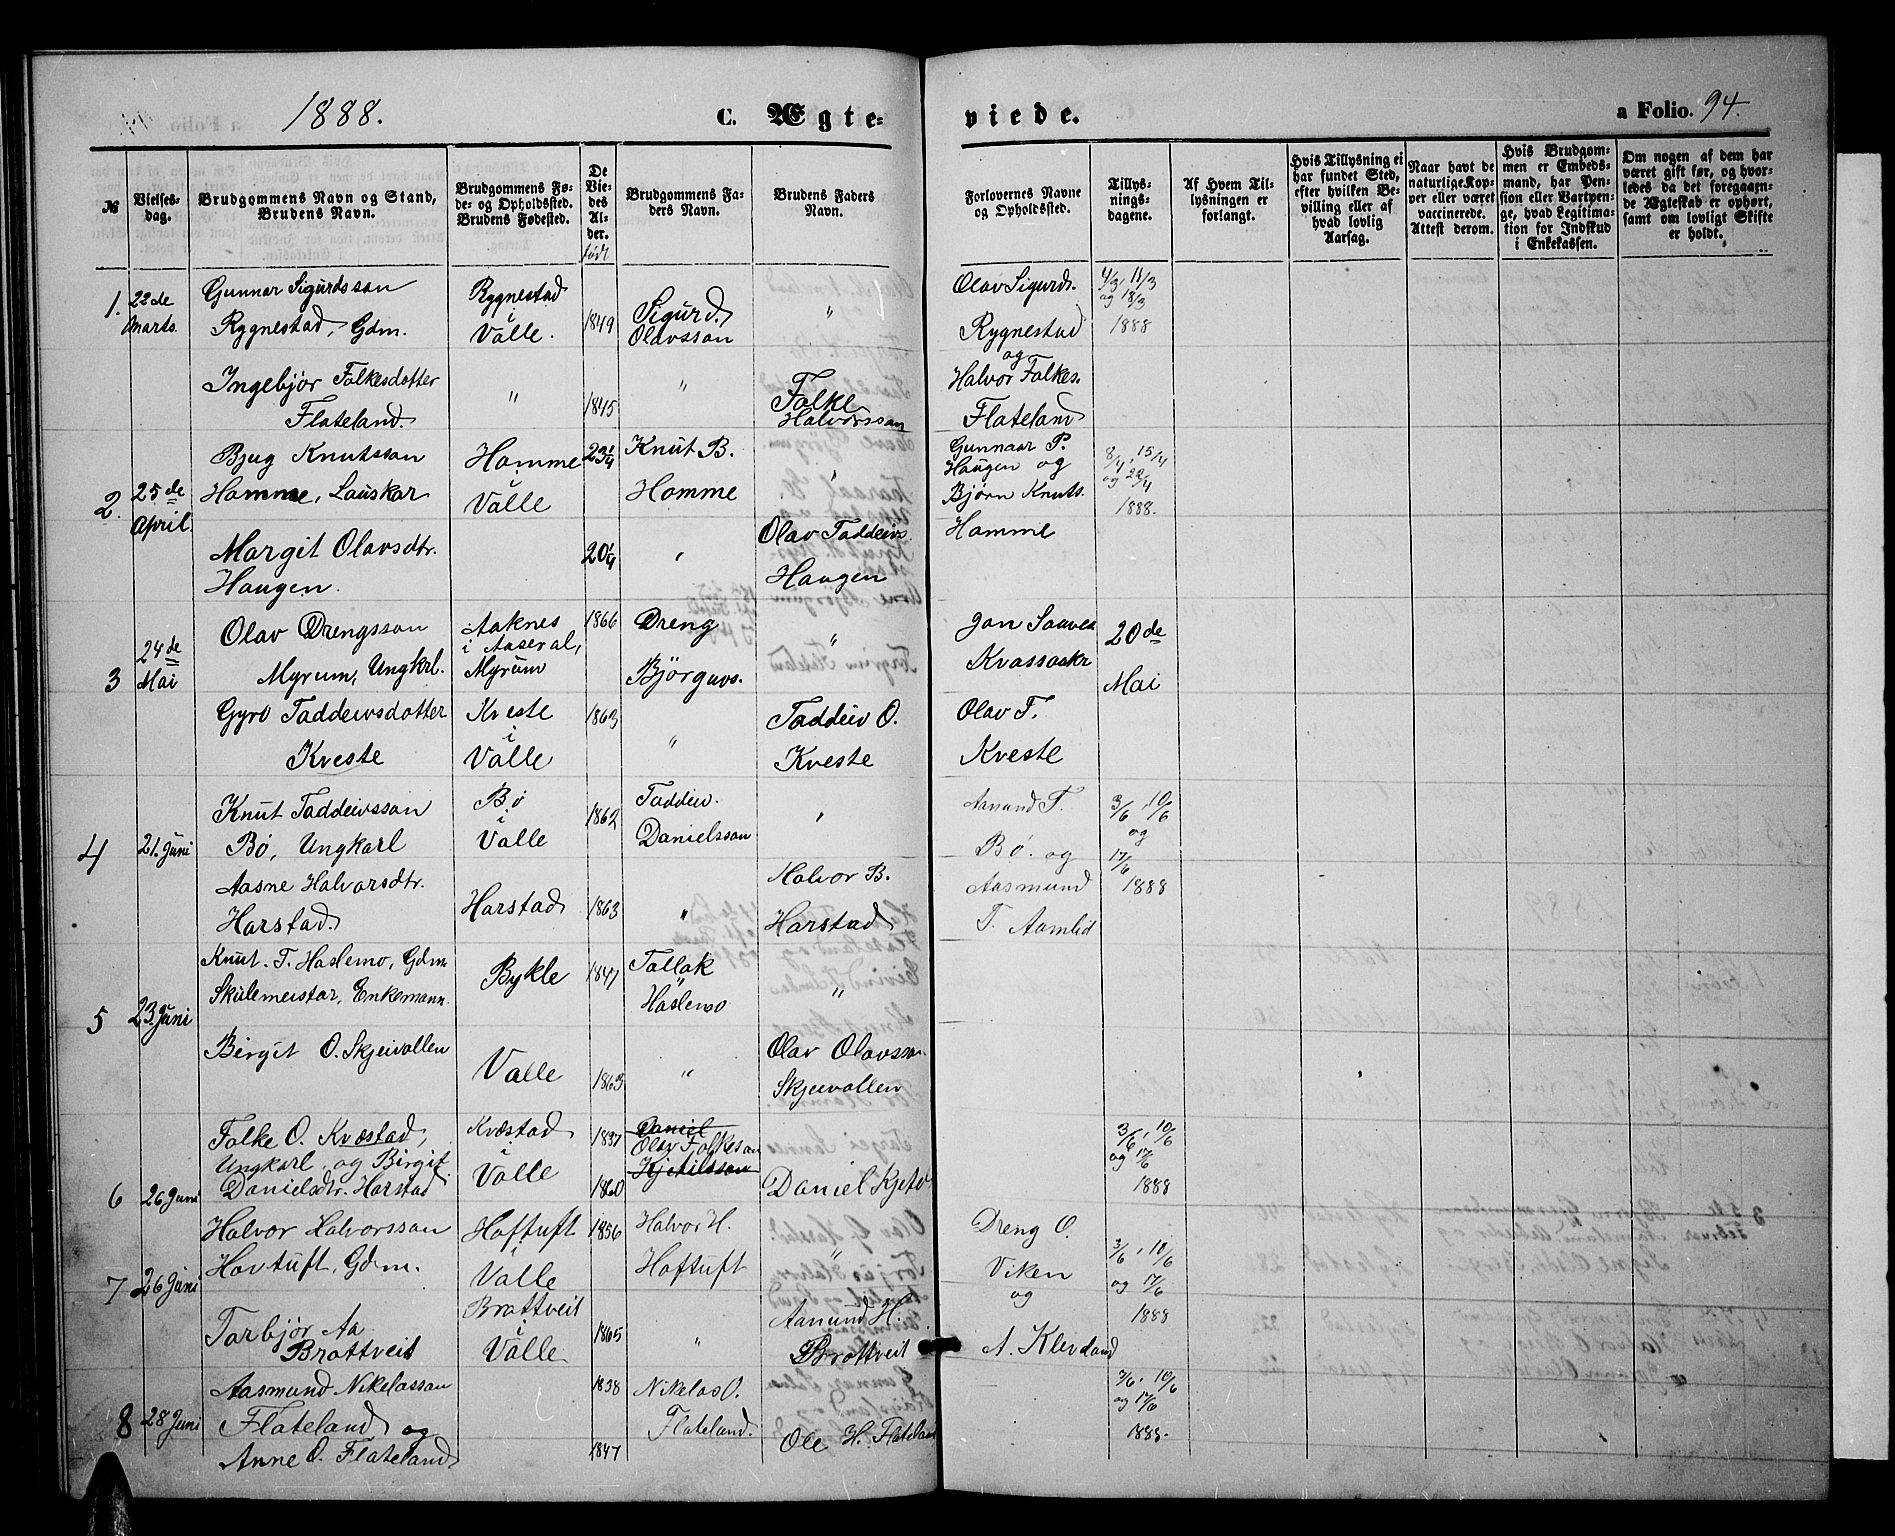 1888.
C. Ægte-
viede.
a Folio. 94.
№
Vielses-
dag.
Brudgommens Navn og Stand,
Brudens Navn.
Brudgommens Fø-
de- og Opholdssted.
Brudens Fødested.
De
Vie-
des
Al-
der.
født
Brudgommens Fa-
ders Navn.
Brudens Faders
Navn.
Forlovernes Navne
og Opholdssted.
Tillys-
nings-
dagene.
Af Hvem Til-
lysningen er
forlangt.
Hvis Tillysning ei
har fundet Sted,
efter hvilken Be-
villing eller af
hvad lovlig
Aarsag.
Naar havt de
naturlige Kop-
per eller været
vaccinerede.
Attest derom.
Hvis Brudgom-
men er Embeds-
mand, har Pen-
sion eller Vartpen-
ge, hvad Legitima-
tion for Indskud
i Enkekassen.
Om nogen af dem har
været gift før, og hvor-
ledes da det foregaaen-
de Ægteskab er ophørt,
samt om lovligt Skifte
er holdt.
1.
22de
Marts.
Gunnar Sigurdsson
Rygnestad, Gdm.
Rygnestad
i
Valle.
1849
Sigurd
Olavsson
"
Olav Sigurds.
Rygnestad
og
4/3, 11/3
og 18/3
1888
Ingebjør Folkesdotter
Flateland.
"
1845
"
Folke
Halvorsson
Halvor Folkes.
Flateland
2.
25de
April.
Bjug Knutsson
Homme, Lauskar
Homme
i
Valle
23 1/4
Knut B.
Homme
"
Gunnaar P.
Haugen og
Bjørn Knuts.
Homme
8/4, 15/4
og 22/4
1888.
Margit Olavsdtr.
Haugen.
20 1/4
"
Olav Taddeivs.
Haugen
3
24de
Mai
Olav Drengsson
Myrum, Ungkrl.
Aaknes
i Aaseral,
Myrum
1866
Dreng
Bjørguvs.
"
Jon
20de
Mai
Gyro Taddeivsdotter
Kveste
Kveste
i
Valle
1863
"
Taddeiv O.
Kveste
Olav T.
Kveste
4
21. Juni
Knut Taddeivsson
Bø, Ungkarl
Bø
i
Valle
1862
Taddeiv
Danielsson
"
Aanund T.
Bø. og
Aasmund
T. Aamlid
3/6, 10/6
og
17/6
1888
Aasne Halvorsdtr.
Harstad.
Harstad
1863
"
Halvor B.
Harstad
5
23. Juni
Knut. T. Haslemo, Gdm
Skulemeistar, Enkemann
Bykle
1847
Tallak
Haslemo
"
Birgit O. Skjeivollen
Valle
1863
"
Olav Olavsson
Skjeivollen
6
26 Juni
Folke O. Kvæstad,
Ungkarl, og Birgit
Danielsdtr. Harstad
Kvæstad
i
Valle
1837
1860
Daniel
Olav Folkeson
Kjetilsson
Daniel Kjetv
3/6, 10/6
og 17/6
1888
7
26 Juni
Halvor Halvorsson
Hovtuft, Gdm.
Hoftuft
i
Valle
1856
Halvor H.
Hoftuft
"
Dreng O.
Viken
og
A. Klevland
3/6, 10/6
og 17/6
1888
Torbjør Aa.
Brottveit
Brottveit
i
Valle
1865
"
Aanund H.
Brottveit
8
28 Juni
Aasmund Nikolasson
Flateland og
Anne O. Flateland
1838
1847
Nikolas O.
Flateland.
Ole H. Flateland
3/6, 10/6
og 17/6
1888.